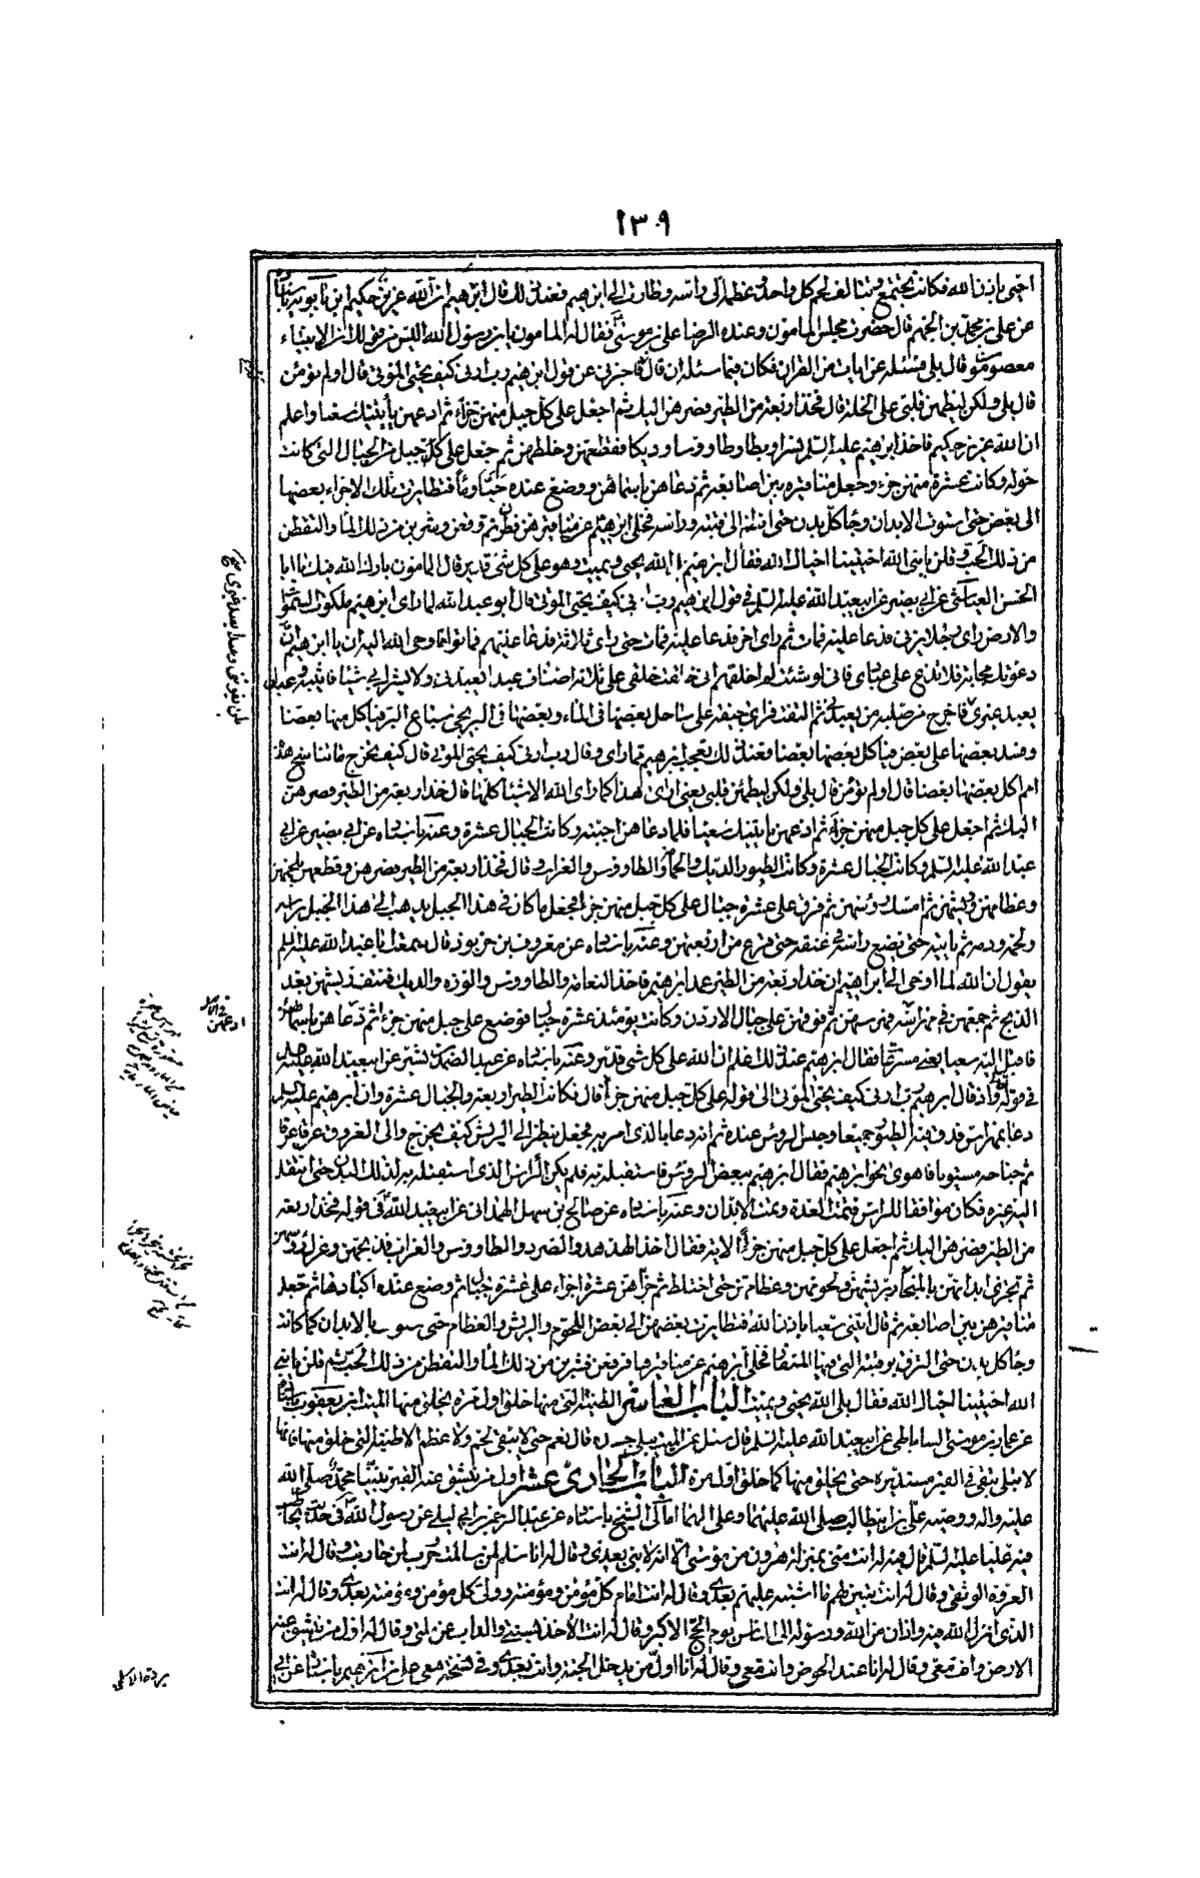 ١٣٠٩
احيى باذن الله فكانت تجتمع وتتألف لحم كل واحد وعظمه الى راسه وطارت الى ابرهيم فعند ذلك قال ابرهيم ان الله عزيز حكيم ابن بابويه باسناده
عن على بن محمد بن الجهم قال حضرت مجلس المامون وعنده الرضا على بن موسى فقال له المامون يابن رسول الله اليس من قولك ان الانبياء
معصومون قال بلى فسئله عن ايات من القران فكان فيما سئله ان قال فاخبرنى عن قول ابرهيم رب ارنى كيف يحيى الموتى قال اولم تؤمن
قال بلى ولكن ليطمئن قلبى على الخلة قال فخذ اربعة من الطير فصرهن اليك ثم اجعل على كل جبل منهن جزءا ثم ادعهن يأتينك سعيا واعلم
ان الله عزيز حكيم فاخذ ابرهيم عليه السلم نسرا وبطا وطاووسا وديكا فقطعهن وخلطهن ثم جعل على كل جبل من الجبال التى كانت
حوله وكانت عشرة منهن جزء وجعل مناقيرهن بين اصابعه ثم دعاهن باسمائهن ووضع عنده حبا وماء فتطايرت تلك الاجزاء بعضها
الى بعض حتى استوت الابدان وجاء كل بدن حتى انضم الى رقبته وراسه فخلى ابرهيم عن مناقيرهن فطرن ثم وقعن وشربن من ذلك الماء والتقطن
من ذلك الحب وقلن يا نبى الله احييتنا احياك الله فقال ابرهيم بل الله يحيى ويميت وهو على كل شئ قدير قال المامون بارك الله فيك يا ابا
الحسن العياشى عن ابى بصير عن ابيعبد الله عليه السلم فى قول ابرهيم رب ارنى كيف يحيى الموتى قال ابو عبد الله لما راى ابرهيم ملكوت السموات
والارض راى رجلا يزنى فدعا عليه فمات ثم راى اخر فدعا عليه فمات حتى راى ثلاثة فدعا عليهم فماتوا فاوحى الله اليه ان يا ابرهيم ان
دعوتك مجابة فلا تدع على عبادى فانى لو شئت لم اخلقهم انى خلقت خلقى على ثلثة اصناف عبدا يعبدنى ولا يشرك بى شيئا فاثيبه وعبدا
يعبد غيرى فاخرج من صلبه من يعبدنى ثم التفت فراى جيفة على ساحل بعضها فى الماء وبعضها فى البر يجئ سباع البر فياكل منها بعضا
ويشد بعضها على بعض فياكل بعضها بعضا فعند ذلك تعجب ابرهيم مما راى وقال رب ارنى كيف يحيى الموتى قال كيف يخرج ما تناسخ هذه
امم اكل بعضها بعضا قال اولم تؤمن قال بلى ولكن ليطمئن قلبى يعنى ارى هذا كما راى الله الاشياء كلها قال خذ اربعة من الطير فصرهن
اليك ثم اجعل على كل جبل منهن جزءا ثم ادعهن ياتينك سعيا فلما دعاهن اجبنه وكانت الجبال عشرة وعنه باسناده عن ابى بصير عن ابى
عبد الله عليه السلم وكانت الجبال عشرة وكانت الطيور الديك والحمامة والطاووس والغراب وقال فخذ اربعة من الطير فصرهن وقطعهن بلحمهن
وعظامهن وريشهن ثم امسك رؤسهن ثم فرق على عشرة جبال على كل جبل منهن جزء فجعل ما كان فى هذا الجبل يذهب الى هذا الجبل براسه
ولحمه ودمه ثم ياتيه حتى يضع راسه فى عنقه حتى فرغ من اربعتهن وعنه باسناده عن معروف بن خربوذ قال سمعت ابا عبد الله عليه السلم
يقول ان الله لما اوحى الى ابراهيم ان خذ اربعة من الطير عمد ابرهيم فاخذ النعامة والطاووس والوزة والديك فنتف ريشهن بعد
الذبح ثم جمعهن فى مهراسة فهرسهن ثم فرقهن على جبال الاردن وكانت يومئذ عشرة جبال فوضع على كل جبل منهن جزء ثم دعاهن باسمائهن
فاقبلن اليه سعيا يعنى مسرعات فقال ابرهيم عند ذلك اعلم ان الله على كل شئ قدير وعنه باسناده عن عبد الصمد بن بشير عن ابيعبد الله عليه السلم
فى قوله واذ قال ابرهيم رب ارنى كيف يحيى الموتى الى قوله على كل جبل منهن جزءا قال فكانت الطير اربعة والجبال عشرة وان ابرهيم عليه السلم
دعا بمهراس فدق فيه الطيور جميعا وحبس الرؤس عنده ثم انه دعا بالذى امر به فجعل ينظر الى الريش كيف يخرج والى العروق عرقا عرقا
ثم جناحه مستويا فاهوى نحو ابرهيم فقال ابرهيم ببعض الرؤس فاستقبله به فلم يكن الراس الذى استقبله به لذلك البدن حتى انتقل
اليه غيره فكان موافقا للراس فتمت العدة وتمت الابدان وعنه باسناده عن صالح بن سهل الهمدانى عن ابيعبد الله فى قوله فخذ اربعة
من الطير فصرهن اليك ثم اجعل على كل جبل منهن جزءا الاية فقال اخذ الهدهد والصرد والطاووس والغراب فذبحهن وعزل رؤسهن
ثم نحز ابدانهن بالمنحاز بريشهن ولحومهن وعظامهن حتى اختلط ثم جزاهن عشرة اجزاء على عشرة جبال ثم وضع عنده اكبادها ثم جعل
مناقيرهن بين اصابعه ثم قال ائتينى سعيا باذن الله فتطايرت بعضهن الى بعض اللحوم والريش والعظام حتى استوت بالابدان كما كانت
وجاء كل بدن حتى التزق برقبته التى فيها المنقار فخلى ابرهيم عن مناقيرها فرفعن فشربن من ذلك الماء والتقطن من ذلك الحب ثم قلن يا نبى
الله احييتنا احياك الله فقال بلى الله يحيى ويميت الباب العاشر الطينة التى منها خلق اول مرة يخلق منها الميت ابن يعقوب باسناده
عن عمار بن موسى الساباطى عن ابيعبد الله عليه السلم قال سئل عن الميت يبلى جسده قال نعم حتى لا يبقى لحم ولا عظم الا طينته التى خلق منها فانها
لا تبلى تبقى فى القبر مستديرة حتى يخلق منها كما خلق اول مرة الباب الحادى عشر اول من تنشق عنه القبر نبينا محمد صلى الله
عليه واله ووصيه على بن ابيطالب صلى الله عليهما وعلى الهما امالى الشيخ باسناده عن عبد الرحمن بن ابى ليلى عن رسول الله فى حديث يخاطب
فيه عليا عليه السلم قال فيه له انت منى بمنزلة هرون من موسى الا انه لا نبى بعدى وقال له انا سلم لمن سالمت وحرب لمن حاربت وقال له انت
العروة الوثقى وقال له انت تبين لهم ما اشتبه عليهم بعدى وقال له انت امام كل مؤمن ومؤمنة وولى كل مؤمن ومؤمنة بعدى وقال له انت
الذى انزل الله فيه واذان من الله ورسوله الى الناس يوم الحج الاكبر وقال له انت الاخذ بسنتى والذاب عن ملتى وقال له انا اول من تنشق عنه
الارض وانت معى وقال له انا عند الحوض وانت معى وقال له انا اول من يدخل الجنة وانت بعدى وفى نسخة معى على بن ابرهيم باسناده عن ابى